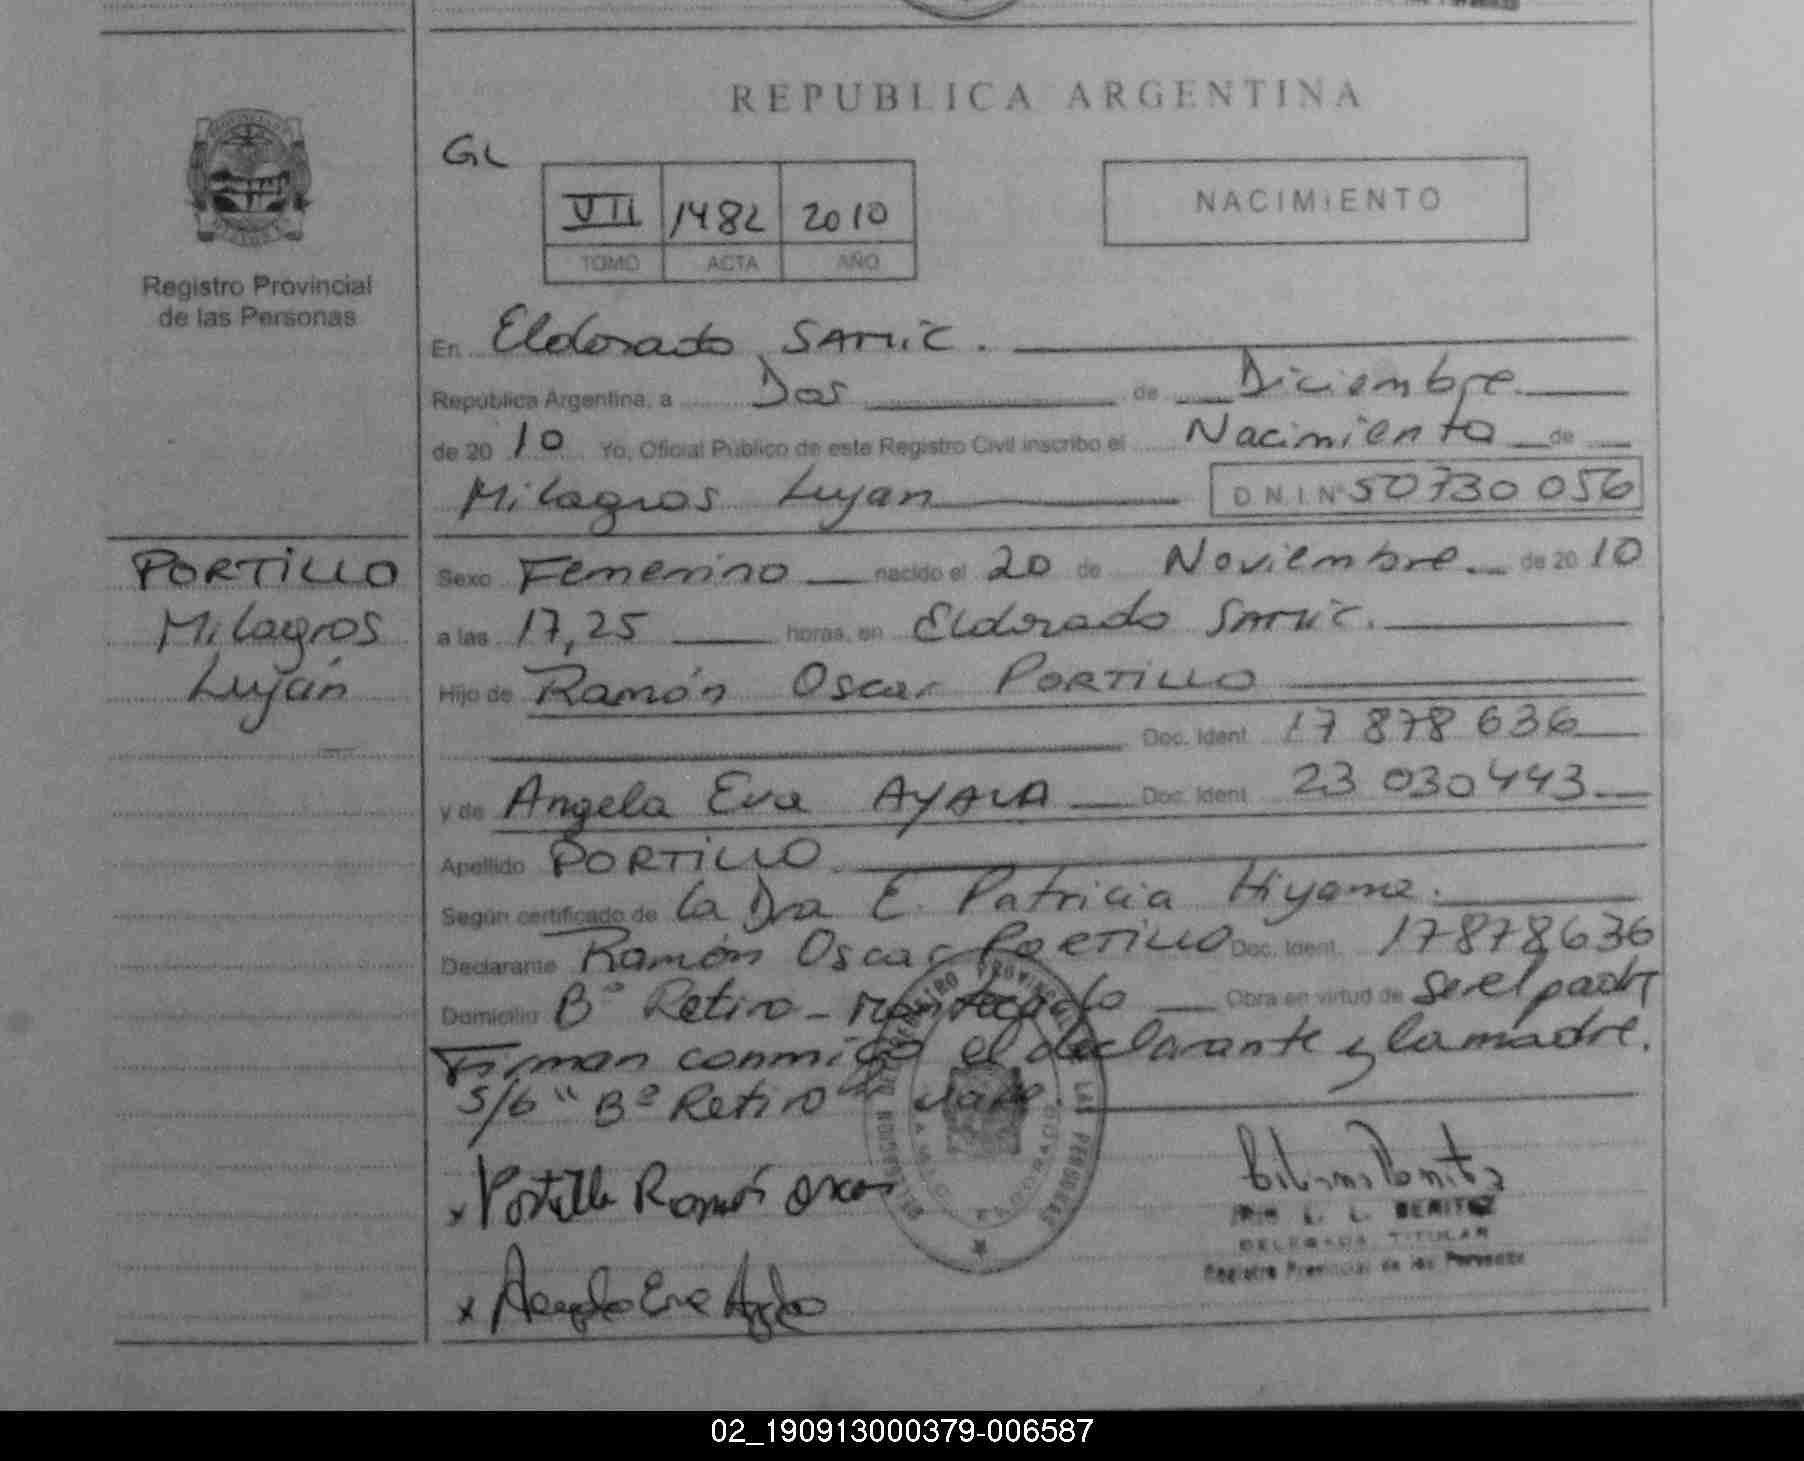 REPUBLICA ARGENTINA
GL
VII 1482 2010
TOMO ACTA AÑO
NACIMIENTO
Registro Provincial
de las Personas
En Eldorado SAMIC.
República Argentina, a Dos de Diciembre
de 20 10 Yo, Oficial Público de este Registro Civil inscribo el Nacimiento de
Milagros Lujan D.N.I.Nº 50730056
PORTILLO
Milagros
Luján
Sexo Femenino nacido el 20 de Noviembre de 20 10
a las 17,25 horas, en Eldorado SAMIC.
Hijo de Ramón Oscar PORTILLO
Doc. Ident. 17 878 636
y de Angela Eva AYALA Doc. Ident. 23 030443
Apellido PORTILLO
Según certificado de la Dra E. Patricia Hiyama.
Declarante Ramón Oscar PORTILLO Doc. Ident. 17878636
Domicilio Bº Retiro - Montecarlo Obra en virtud de ser el padre
Firman conmigo el declarante y la madre.
S/b "Bº Retiro" vale.
x Portillo Ramón Oscar
x Angela Eva Ayala
L. L. BENITEZ
DELEGADA TITULAR
Registro Provincial de las Personas
02_190913000379-006587